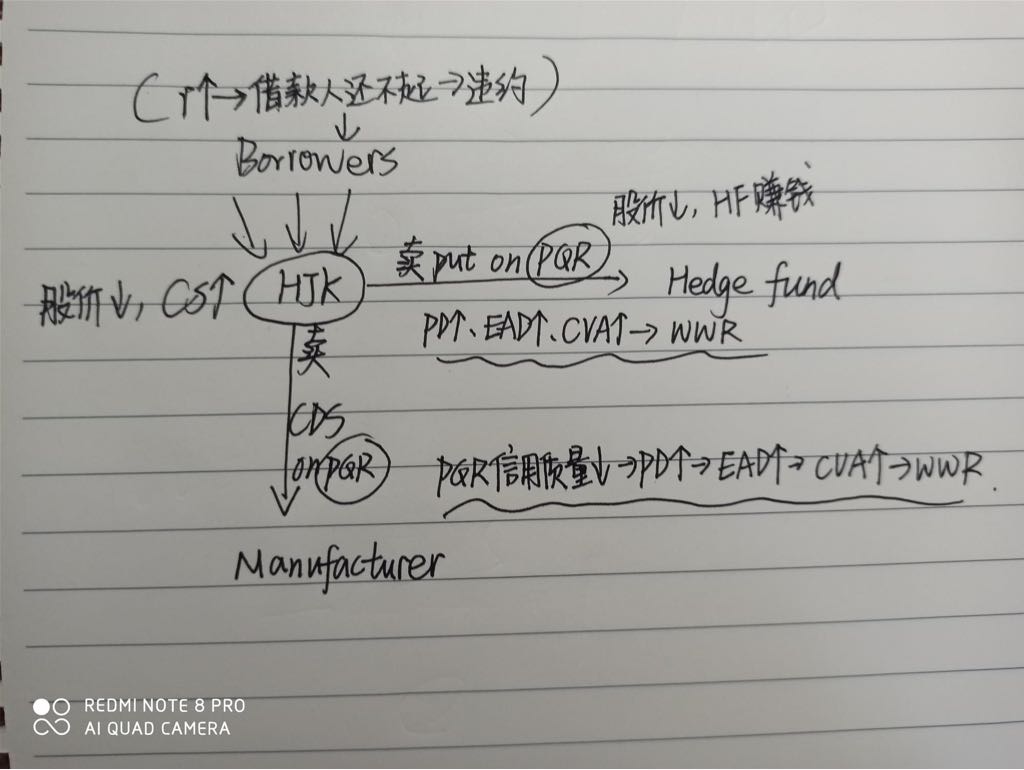 (r↑→借款人还不起→违约)
↓
Borrowers
股价↓, HF赚钱
卖 put on PQR
Hedge fund
股价↓, CS↑
HJK
PD↑、EAD↑、CVA↑→ WWR
卖
CDS
on PQR
PQR信用质量↓→PD↑→EAD↑→CVA↑→WWR.
Manufacturer
REDMI NOTE 8 PRO
AI QUAD CAMERA